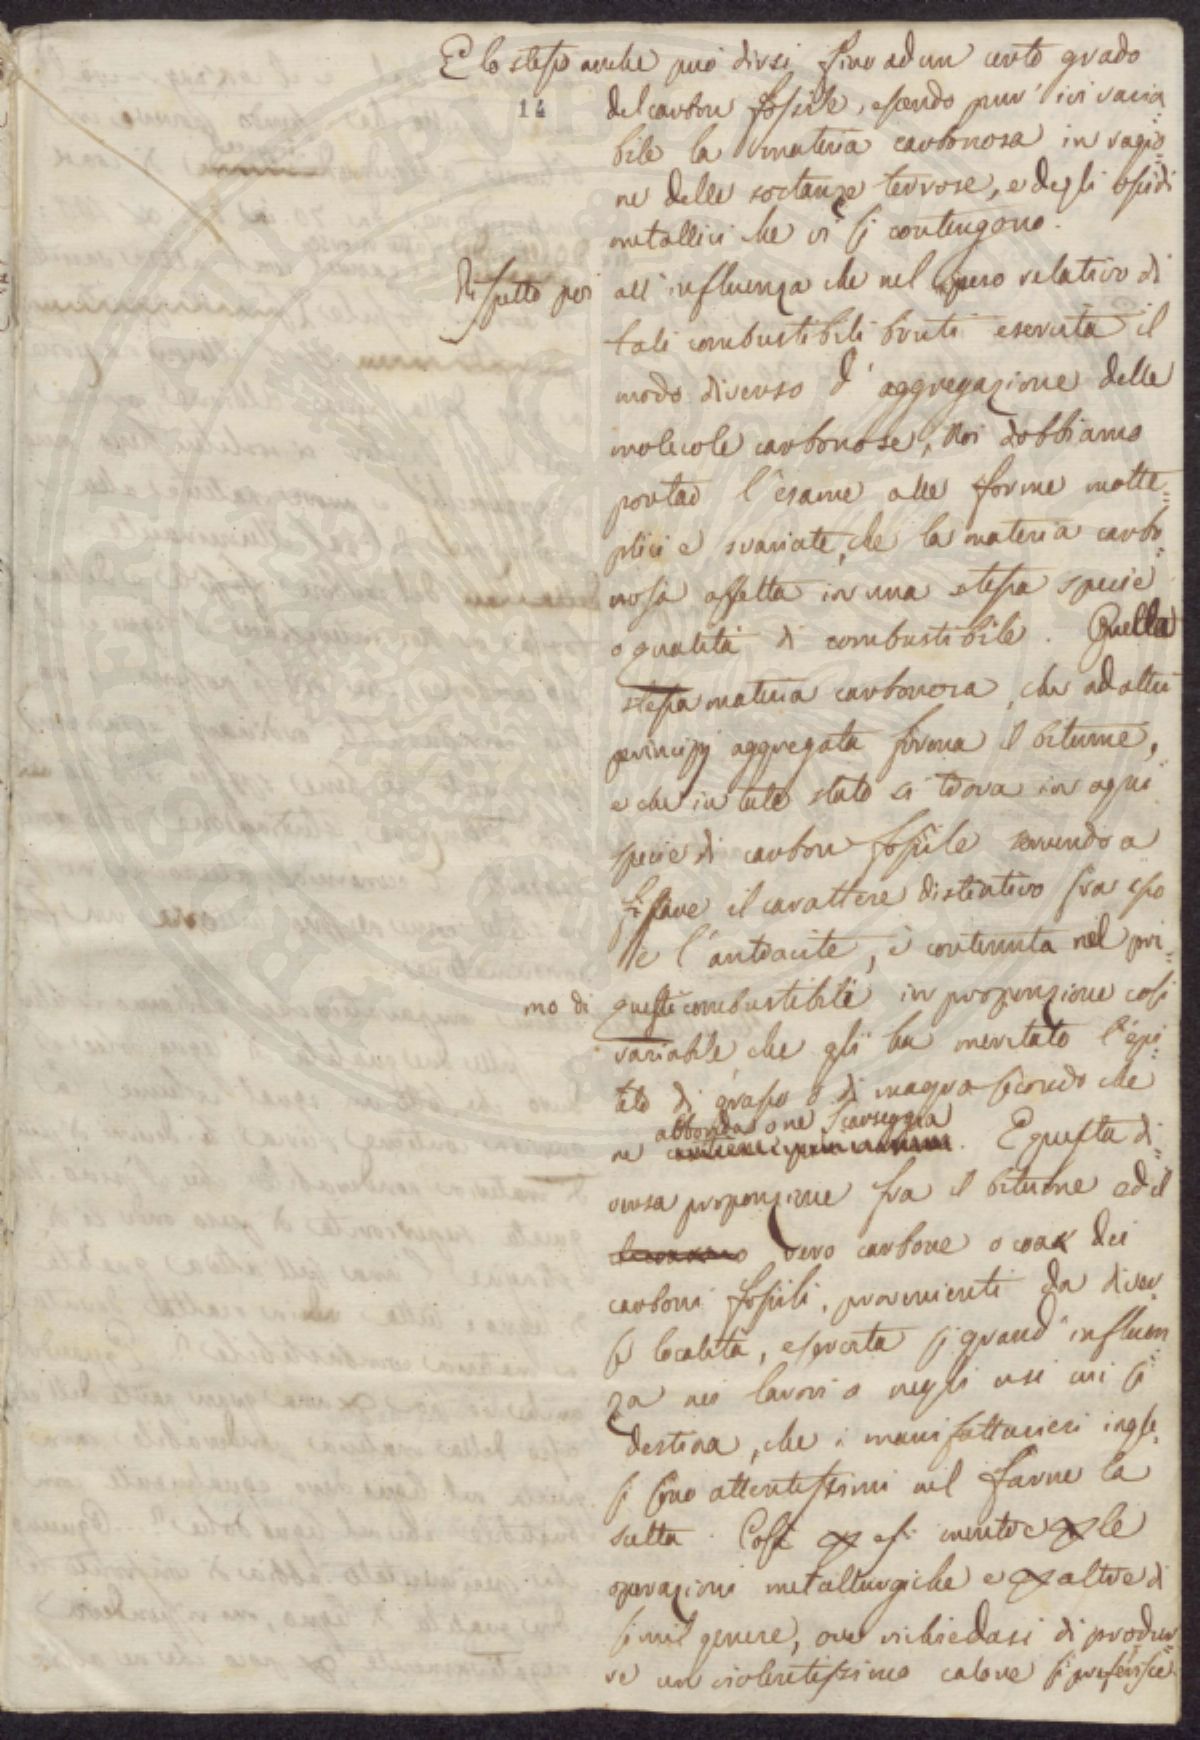 E lo stesso anche può dirsi fino ad un certo grado
14
del carbon fossile, essendo pur' ivi varia=
bile la materia carbonosa in ragio=
ne delle sostanze terrose, e degli ossidi
metallici che vi si contengono.
Rispetto poi all'influenza che nel peso relativo di
tali combustibili bruti esercita il
modo diverso d'aggregazione delle
molecole carbonose, noi dobbiamo
portar l'esame alle forme molte=
plici e svariate, che la materia carbo=
nosa affetta in una stessa specie
o qualità di combustibile. Quella
stessa materia carbonosa, che ad altri
principj aggregata forma il bitume,
e che in tale stato si trova in ogni
specie di carbon fossile servendo a
fissare il carattere distintivo fra esso
e l'antracite, è contenuta nel pri=
mo di questi combustibili in proporzione così
variabile, che gli ha meritato l'epi=
teto di grasso o di magro secondo che
abbonda o ne scarseggia
ne. E questa di=
versa proporzione fra il bitume ed il
vero carbone o coak dei
carboni fossili, provenienti da diver=
se località, esercita sì grand'influen=
za nei lavori o negli usi cui si
destina, che i manifattucieri ingle=
si sono attentissimi nel farne la
scelta. Così essi mentre le
operazioni metallurgiche e altre di
simil genere, ove richiedasi di produr=
re un violentissimo calore si preferisce